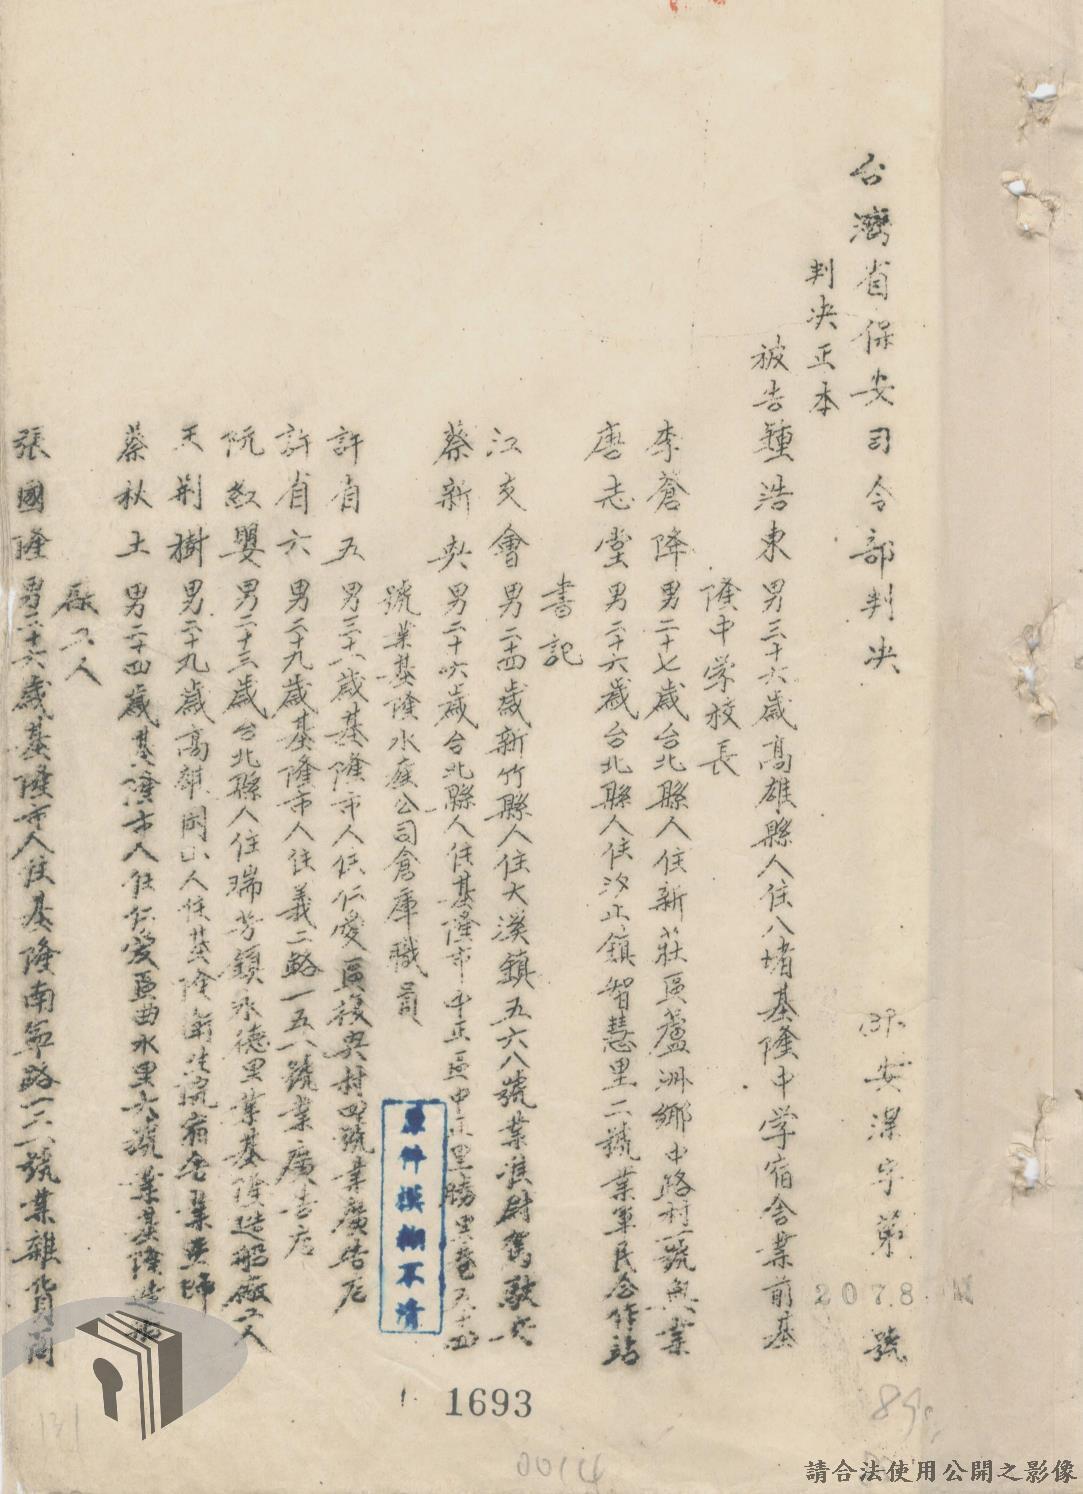 台灣省保安司令部判决
安潔字第 2078 號
判决正本
被告鍾浩東男三十六歲高雄縣人住八堵基隆中学宿舍業前基
隆中学校長
李蒼降男二十七歲台北縣人住新莊區蘆洲鄉中路村一號無業
唐志堂男二十六歲台北縣人住汐止鎮智慧里二號業軍民合作站
書記
江支會男二十四歲新竹縣人住大溪鎮五六八號業准尉駕駛兵
蔡新興男二十六歲台北縣人住基隆市中正區中正里
號業基隆水產公司倉庫職員
許省五男三十八歲基隆市人住仁愛區復興村四號業廣告店
許省六男二十九歲基隆市人住義二路一五八號業廣告店
阮紅嬰男二十三歲台北縣人住瑞芳鎮永德里業基隆造船廠工人
王荊樹男二十九歲高雄岡山人住基隆衛生院宿舍業
蔡秋土男二十四歲基隆市人住仁愛區曲水里六號業基隆造船
廠工人
張國隆男二十六歲基隆市人住基隆南榮路一二八號業雜貨商
原件模糊不清
1693
0014
131
請合法使用公開之影像